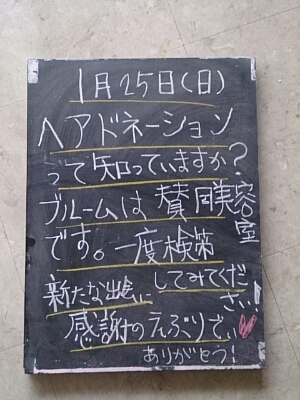 1月25日(日)
ヘアドネーション
って知っていますか?
ブルームは賛同美容室
です。一度検索
してみてください!
新たな出会...
感謝のえぶりでい
ありがとう!